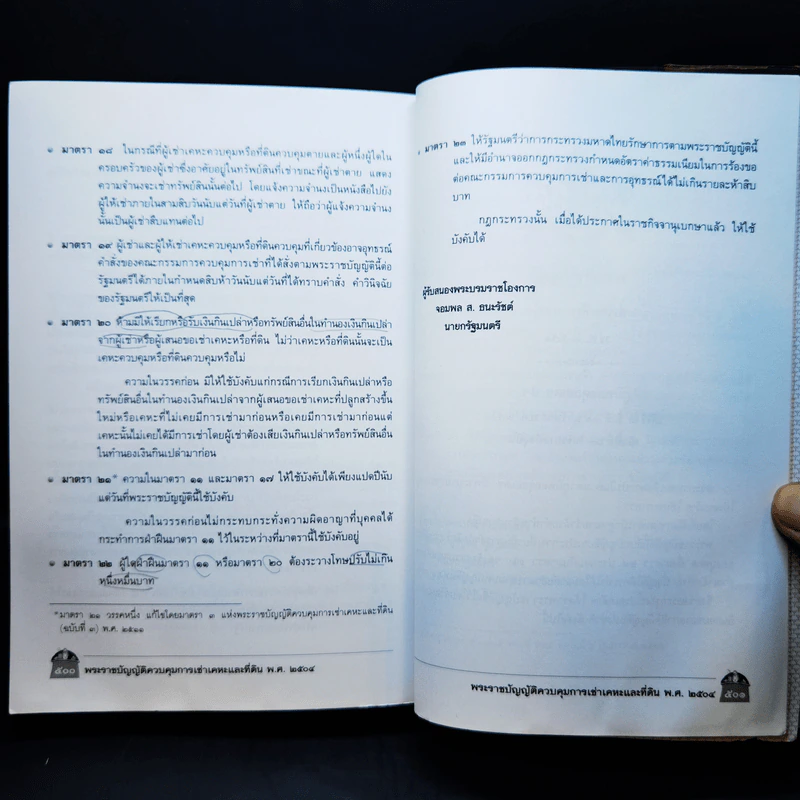 ๏ มาตรา ๑๘ ในกรณีที่ผู้เช่าเคหะควบคุมหรือที่ดินควบคุมตายและผู้หนึ่งผู้ใดใน
ครอบครัวของผู้เช่าซึ่งอาศัยอยู่ในทรัพย์สินที่เช่าขณะที่ผู้เช่าตาย แสดง
ความจำนงจะเช่าทรัพย์สินนั้นต่อไป โดยแจ้งความจำนงเป็นหนังสือไปยัง
ผู้ให้เช่าภายในสามสิบวันนับแต่วันที่ผู้เช่าตาย ให้ถือว่าผู้แจ้งความจำนง
นั้นเป็นผู้เช่าสืบแทนต่อไป
๏ มาตรา ๑๙ ผู้เช่าและผู้ให้เช่าเคหะควบคุมหรือที่ดินควบคุมที่เกี่ยวข้องอาจอุทธรณ์
คำสั่งของคณะกรรมการควบคุมการเช่าที่ได้สั่งตามพระราชบัญญัตินี้ต่อ
รัฐมนตรีได้ภายในกำหนดสิบห้าวันนับแต่วันที่ได้ทราบคำสั่ง คำวินิจฉัย
ของรัฐมนตรีให้เป็นที่สุด
๏ มาตรา ๒๐ ห้ามมิให้เรียกหรือรับเงินกินเปล่าหรือทรัพย์สินอื่นในทำนองเงินกินเปล่า
จากผู้เช่าหรือผู้เสนอขอเช่าเคหะหรือที่ดิน ไม่ว่าเคหะหรือที่ดินนั้นจะเป็น
เคหะควบคุมหรือที่ดินควบคุมหรือไม่
ความในวรรคก่อน มิให้ใช้บังคับแก่กรณีการเรียกเงินกินเปล่าหรือ
ทรัพย์สินอื่นในทำนองเงินกินเปล่าจากผู้เสนอขอเช่าเคหะที่ปลูกสร้างขึ้น
ใหม่หรือเคหะที่ไม่เคยมีการเช่ามาก่อนหรือเคยมีการเช่ามาก่อนแต่
เคหะนั้นไม่เคยได้มีการเช่าโดยผู้เช่าต้องเสียเงินกินเปล่าหรือทรัพย์สินอื่น
ในทำนองเงินกินเปล่ามาก่อน
๏ มาตรา ๒๑* ความในมาตรา ๑๑ และมาตรา ๑๗ ให้ใช้บังคับได้เพียงแปดปีนับ
แต่วันที่พระราชบัญญัตินี้ใช้บังคับ
ความในวรรคก่อนไม่กระทบกระทั่งความผิดอาญาที่บุคคลได้
กระทำการฝ่าฝืนมาตรา ๑๑ ไว้ในระหว่างที่มาตรานี้ใช้บังคับอยู่
๏ มาตรา ๒๒ ผู้ใดฝ่าฝืนมาตรา ๑๑ หรือมาตรา ๒๐ ต้องระวางโทษปรับไม่เกิน
หนึ่งหมื่นบาท
*มาตรา ๒๑ วรรคหนึ่ง แก้ไขโดยมาตรา ๓ แห่งพระราชบัญญัติควบคุมการเช่าเคหะและที่ดิน
(ฉบับที่ ๓) พ.ศ. ๒๕๑๑
๕๐๐ พระราชบัญญัติควบคุมการเช่าเคหะและที่ดิน พ.ศ. ๒๕๐๔
๏ มาตรา ๒๓ ให้รัฐมนตรีว่าการกระทรวงมหาดไทยรักษาการตามพระราชบัญญัตินี้
และให้มีอำนาจออกกฎกระทรวงกำหนดอัตราค่าธรรมเนียมในการร้องขอ
ต่อคณะกรรมการควบคุมการเช่าและการอุทธรณ์ได้ไม่เกินรายละห้าสิบ
บาท
กฎกระทรวงนั้น เมื่อได้ประกาศในราชกิจจานุเบกษาแล้ว ให้ใช้
บังคับได้
ผู้รับสนองพระบรมราชโองการ
จอมพล ส. ธนะรัชต์
นายกรัฐมนตรี
พระราชบัญญัติควบคุมการเช่าเคหะและที่ดิน พ.ศ. ๒๕๐๔ ๕๐๑